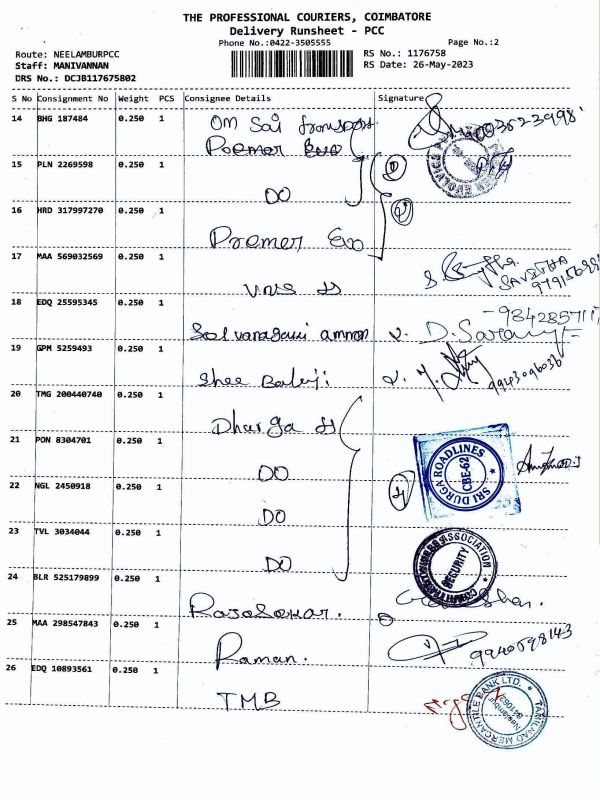 THE PROFESSIONAL COURIERS, COIMBATORE
Delivery Runsheet - PCC
Phone No.:0422-3505555 Page No.:2
Route: NEELAMBURPCC RS No.: 1176758
Staff: MANIVANNAN RS Date: 26-May-2023
DRS No.: DCJB117675802
S No Consignment No Weight PCS Consignee Details Signature
14 BHG 187484 0.250 1 OM Sai transport
Premer Evo
15 PLN 2269598 0.250 1 DO
16 HRD 317997270 0.250 1 Premer Evo
17 MAA 569032569 0.250 1 SAVITHA
18 EDQ 25595345 0.250 1 ammon D. Saranya
19 GPM 5259493 0.250 1 Shee Balaji 9943096036
20 TMG 200440740 0.250 1 Dhurga
21 PON 8304701 0.250 1 DO SRI DURGA ROADLINES CBE-62
22 NGL 2450918 0.250 1 DO
23 TVL 3034044 0.250 1 DO ASSOCIATION SECURITY
24 BLR 525179899 0.250 1 Rajasekar.
25 MAA 298547843 0.250 1 Raman. 9940598143
26 EDQ 10893561 0.250 1 TMB TAMILNAD MERCANTILE BANK LTD. Neelambur 641062